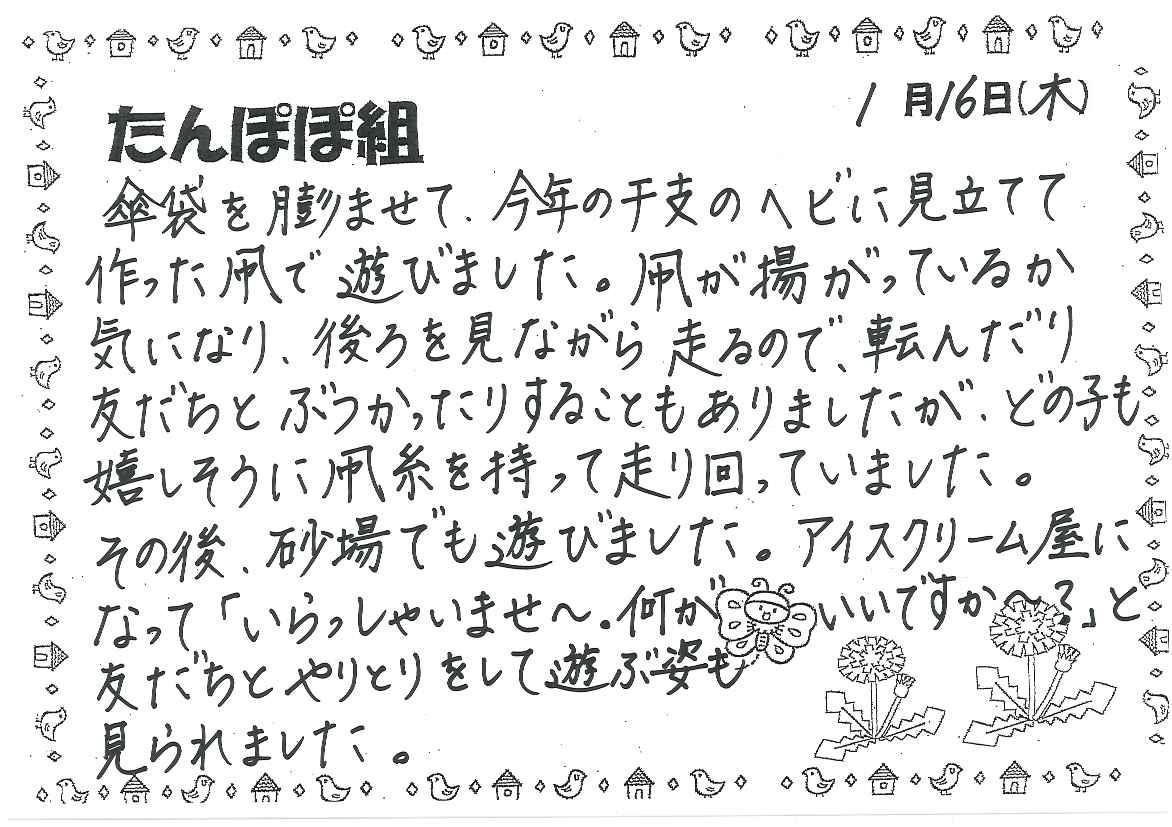 1月16日(木)
たんぽぽ組
傘袋を膨ませて、今年の干支のヘビに見立てて
作った凧で遊びました。凧が揚がっているか
気になり、後ろを見ながら走るので、転んだり
友だちとぶつかったりすることもありましたが、どの子も
嬉しそうに凧糸を持って走り回っていました。
その後、砂場でも遊びました。アイスクリーム屋に
なって「いらっしゃいませ〜。何がいいですか〜?」と
友だちとやりとりをして遊ぶ姿も
見られました。